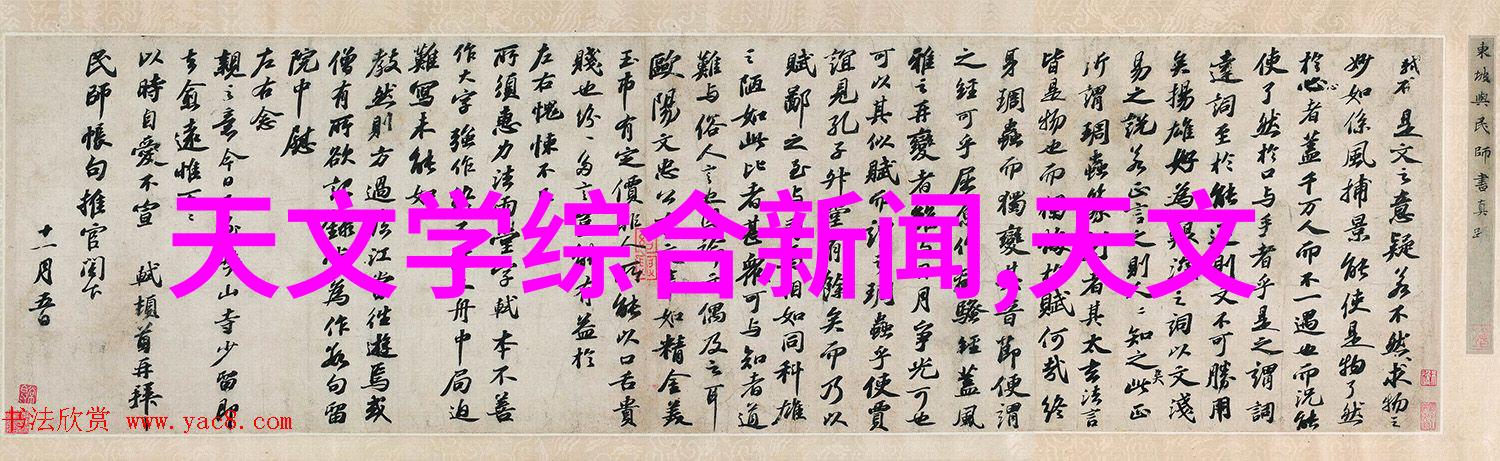 東坡與民師書真跡
是文之意疑若不然求物之
妙如係風捕景能使是物了然
於心者蓋千万人而不一遇也而況能
使了然於口与手者乎是之謂詞
達詞至於能達則文不可勝用
矣揚雄好為艱深之詞以文淺
易之說若正言之則人人知之此正
所謂琱蟲篆刻者其太玄法言
皆是物也而獨悔於賦何哉終
身琱蟲而獨變其音節便謂
之經可乎屈原作離騷經蓋風
雅之再變者雖与日月爭光可也
可以其似賦而謂之琱蟲乎使賈
誼見孔子升堂有餘矣而乃以
賦鄙之至与司馬相如同科雄
之陋如此比者甚衆可与知者道
難与俗人言也因論文偶及之耳
歐陽文忠公言文章如精金美
玉市有定價非人所能以口舌貴
賤也紛紛多言豈能有益於
左右愧悚不已
所須惠力法雨堂字軾本不善
作大字強作終不佳又舟中局迫
難寫未能如
教然則方過臨江當往遊焉或
僧有所欲記錄當為作數句留
院中慰
左右念
親之意今日至峽山寺少留即
去愈遠惟万万
以時自愛不宣 軾頓首再拜
民師帳句推官閣下
十一月五日
天文学综合新闻,天文
书法欣赏 www.yac8.com